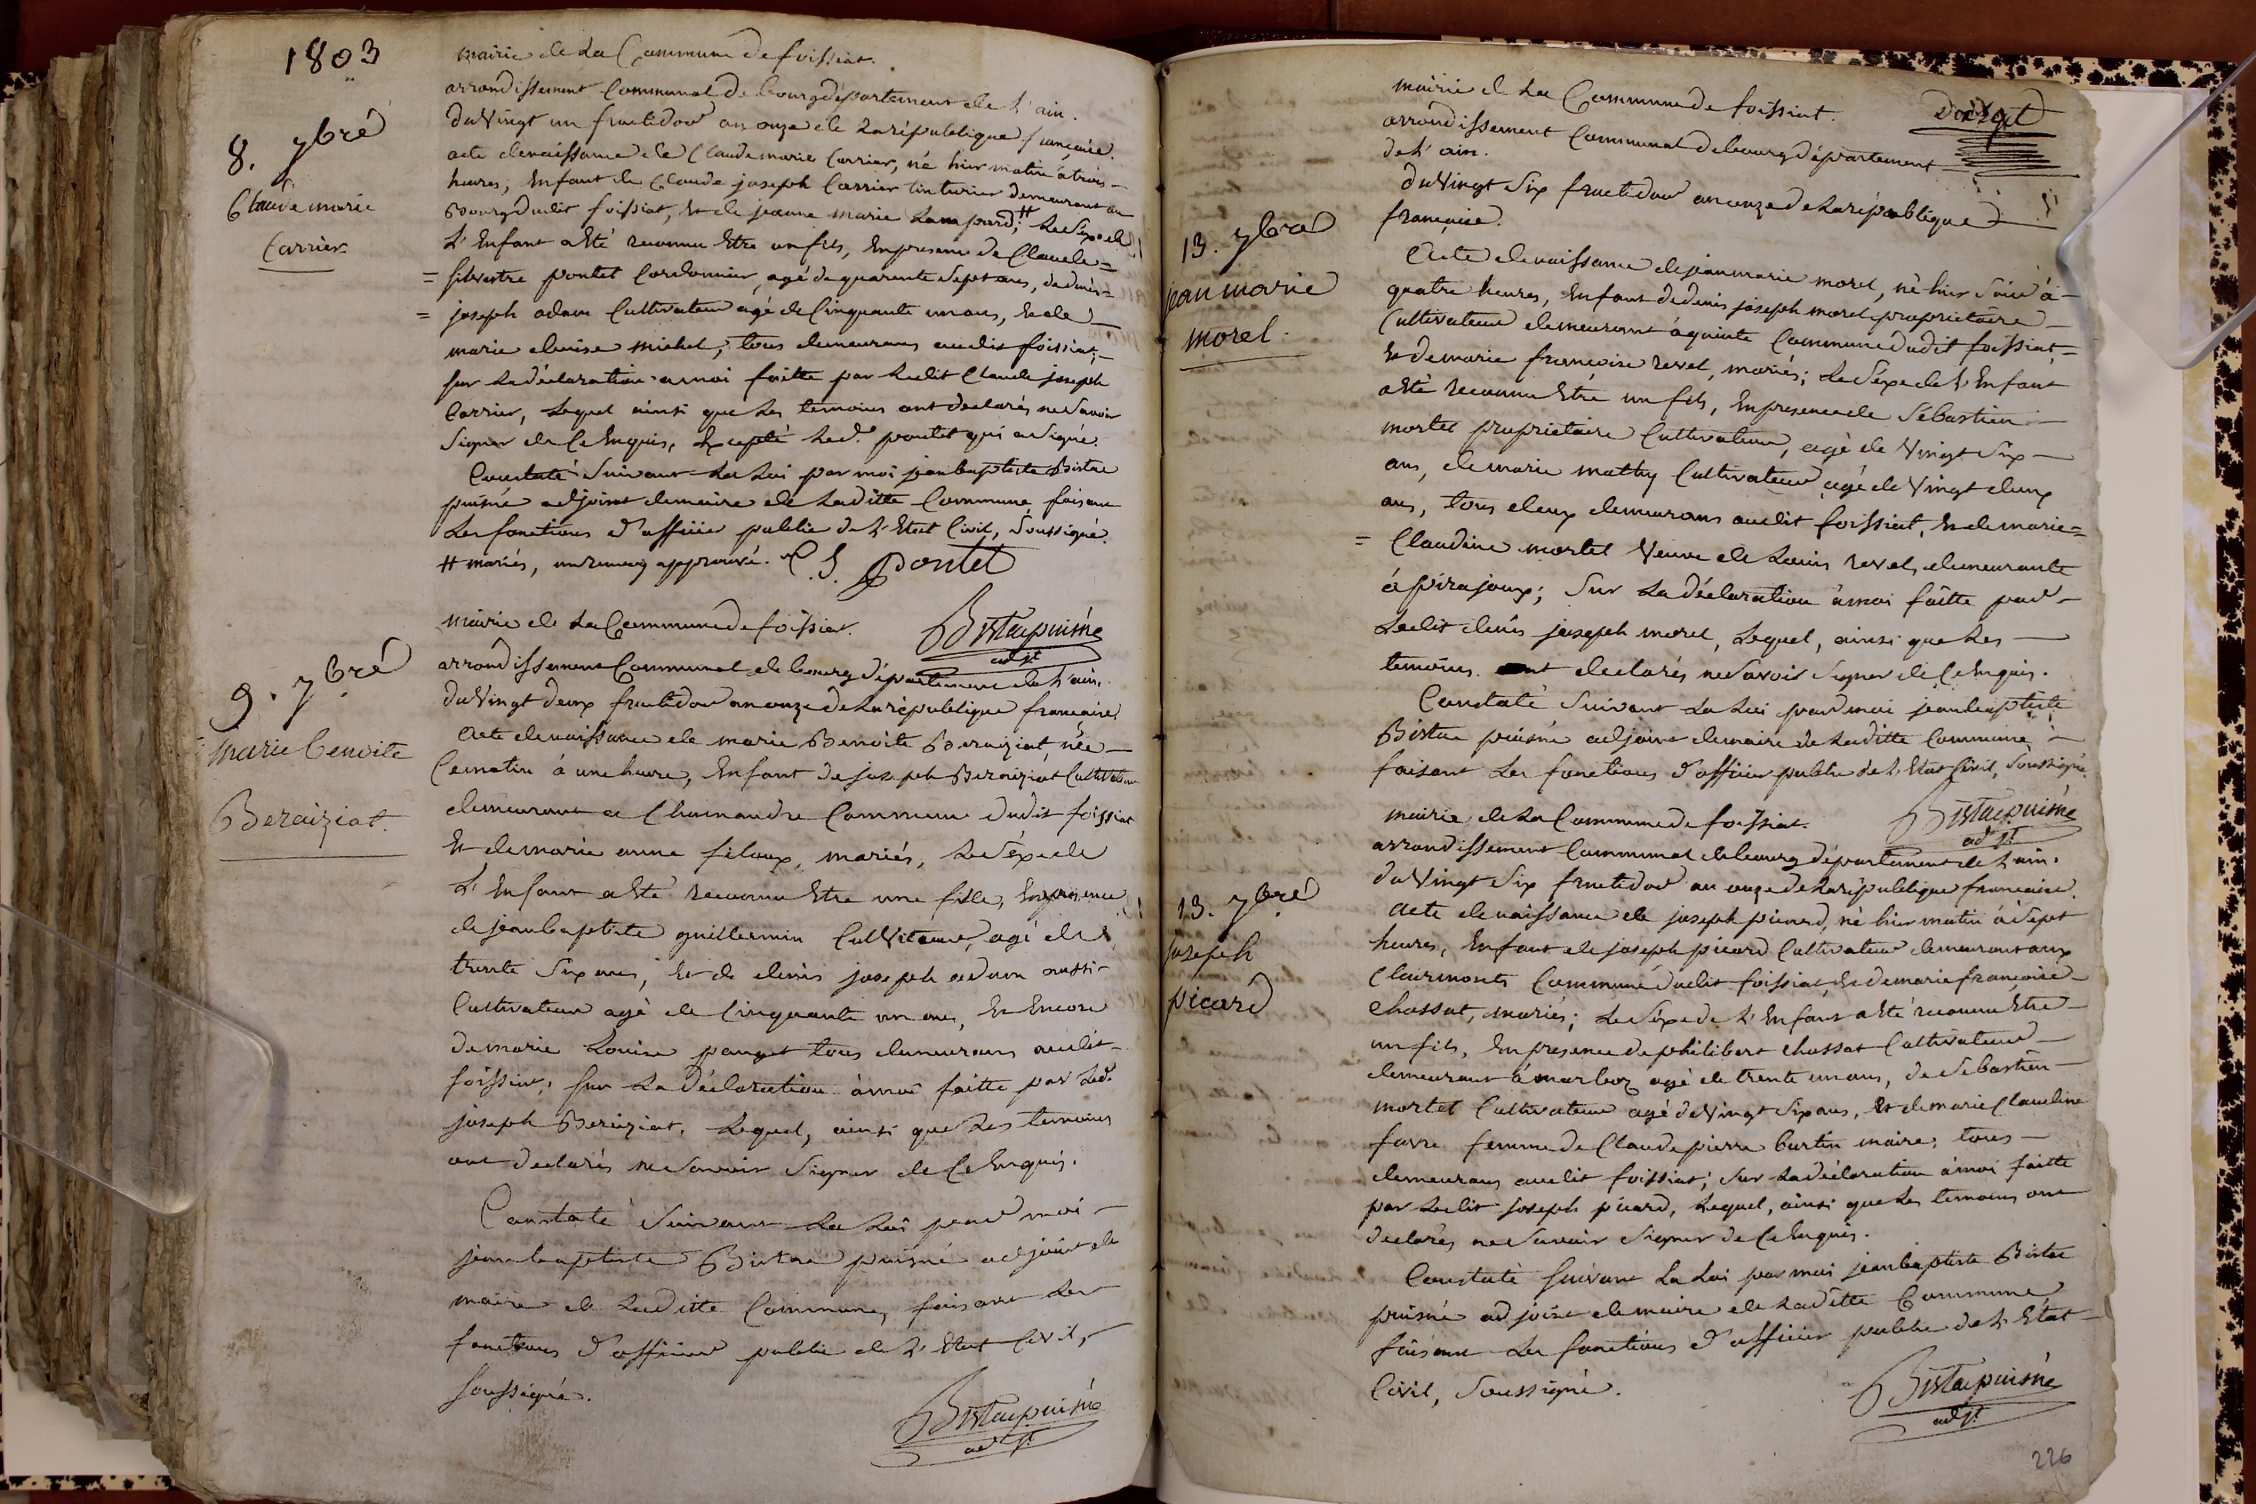 1803
mairie de La Commune de foissiat.
arrondissement Communal de bourg département de L'ain.
du Vingt un fructidor an onze de La république française.
8. 7bre
Claude marie
Carrier
acte denaissance de Claude marie Carrier, né hier matin à trois
heures, Enfant de Claude joseph Carrier tinturier demeurant au
Bourg dudit foissiat, Et de jeanne marie # Le Sexe de
L'Enfant a Eté reconnu Etre un fils, Enpresence de Claude =
= silvestre pontet Cordonnier, agé de quarente Sept ans, de denis =
= joseph adam Cultivateur agé de Cinquante un ans, Et de
marie denise michel, tous demeurans audit foissiat,
sur La déclaration amoi faitte par Ledit Claude joseph
Carrier, Lequel ainsi que Les temoins ont declarés ne Savoir
Signer de Ce Enquis, Excepté Led. pontet qui a Signé.
Constaté Suivant La Loi par moi jeanbaptiste Bistac
puisné adjoint demaire de Laditte Commune, faisant
Les fonctions d'officier public de L'Etat Civil, Soussigné.
# mariés, un renvoy approuvé. C. S. Pontet
Bistacpuisné
adjt
mairie de La Commune de foissiat.
arrondissement Communal de bourg département de L'ain.
du Vingt deux fructidor an onze de La république française.
9. 7bre
Marie benoite
Beraiziat.
Acte denaissance de marie Benoite Beraiziat née
Cematin à une heure, Enfant de joseph Beraiziat Cultivateur
demeurant a Chamandre Commune dudit foissiat
Et de marie anne filoux, mariés, Le Séxe de
L'Enfant a Eté reconnu Etre une fille, En presence
de jeanbaptiste guillermin Cultivateur, agé de
trente Six ans, Et de denis joseph adam aussi
Cultivateur agé de Cinquante un ans, Et Encore
de marie Louise panget tous demeurans audit
foissiat, sur La déclaration àmoi faitte par Led.
joseph Beraiziat, Lequel, ainsi que Les temoins
ont declarés ne Savoir Signer de Ce Enquis.
Constaté Suivant La Loi par moi
jeanbaptiste Bistac puisné adjoint de
maire de Laditte Commune, faisant Les
fonctions d'officier public de L'Etat Civil,
Soussigné.
Bistacpuisné
adjt
mairie de La Commune de foissiat.
arrondissement Communal de bourg département
de L'ain.
du Vingt Six fructidor an onze de La république
française.
13. 7bre
jean marie
morel.
Acte denaissance de jean marie morel, né hier Soir à
quatre heures, Enfant de denis joseph morel proprietaire
Cultivateur demeurant à Commune dudit foissiat
Et de marie françoise revel, mariés; Le Séxe de L'Enfant
a Eté reconnu Etre un fils, Enpresence de Sébastien
mortel proprietaire Cultivateur, agé de Vingt Six
ans, de marie mathy Cultivateur agé de Vingt deux
ans, tous deux demeurans audit foissiat, Et de marie =
= Claudine mortel Veuve de Louis revel, demeurante
à pirajoux; Sur La déclaration àmoi faitte par
Ledit denis joseph morel, Lequel, ainsi que Les
temoins ont declarés ne Savoir Signer de Ce Enquis.
Constaté Suivant La Loi par moi jeanbaptiste
Bistac puisné adjoint demaire de Laditte Commune
faisant Les fonctions d'officier public de L'Etat Civil, Soussigné.
Bistacpuisné
adjt
mairie de La Commune de foissiat.
arrondissement Communal de bourg département de L'ain.
du Vingt Six fructidor an onze de La république française.
13. 7bre
joseph
picard
acte denaissance de joseph picard, né hier matin à Sept
heures, Enfant de joseph picard Cultivateur demeurant aux
Clairmonts Commune dudit foissiat, Et de marie françoise
chassat, mariés; Le Séxe de L'Enfant a Eté reconnu Etre
un fils, Enpresence de philibert chassat Cultivateur
demeurant à marboz agé de trente un ans, de Sébastien
mortel Cultivateur agé de Vingt Six ans, Et de marie Claudine
favre femme de Claude pierre burtin maire, tous
demeurans audit foissiat; Sur La déclaration àmoi faitte
par Ledit joseph picard, Lequel, ainsi que Les temoins ont
declarés ne Savoir Signer de Ce Enquis.
Constaté Suivant La Loi par moi jeanbaptiste Bistac
puisné adjoint demaire de Laditte Commune
faisant Les fonctions d'officier public de L'Etat
Civil, Soussigné.
Bistacpuisné
adjt
226